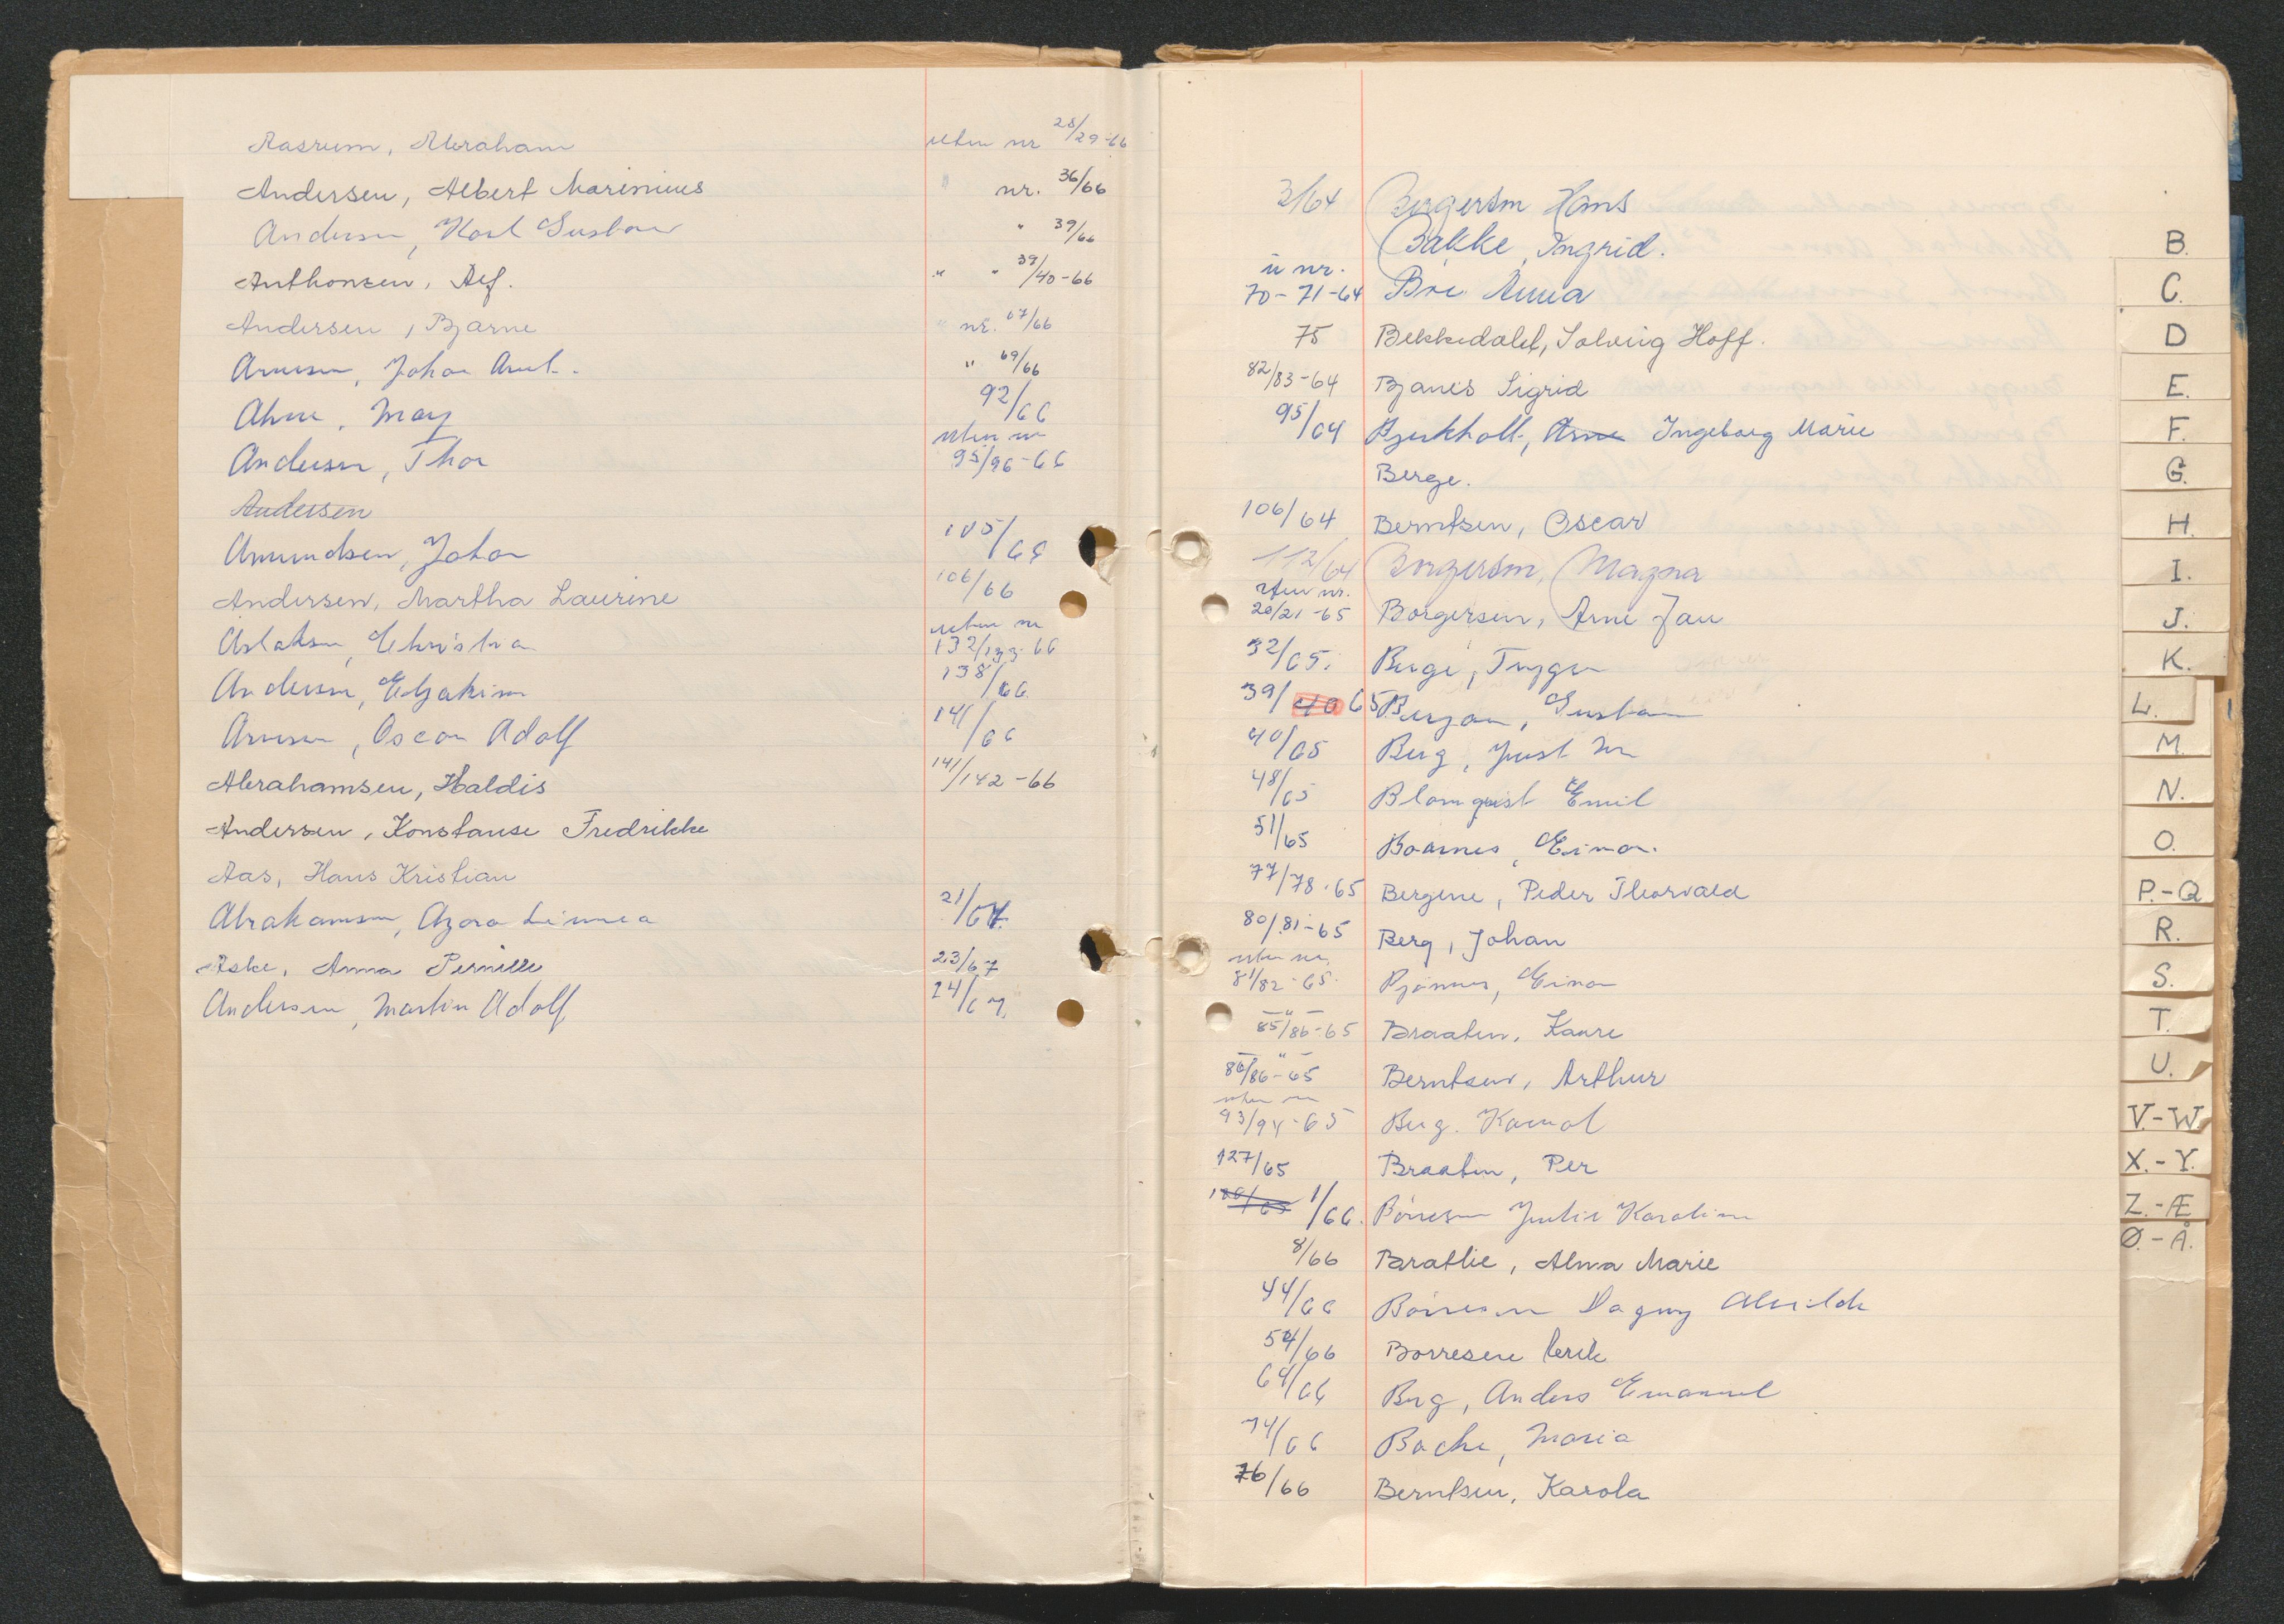 Aasrum, Abraham uten nr 28/29-66
Andersen, Albert Marinius " nr. 36/66
Andersen, Karl Gustav " 39/66
Anthonsen, Alf. " " 39/40-66
Andersen, Bjarne " nr. 67/66
Arnesen, Johan Arnt. " 69/66
Ahne, May 92/66
uten nr
Andersen, Thor 95/96-66
Andersen
Amundsen, Johan 105/66
Andersen, Martha Laurine 106/66
uten nr
Aslaksen, Christia 132/133-66
Andersen, Eljakim 138/66
Arnesen, Oscar Adolf 141/66
Abrahamsen, Haldis 141/142-66
Andersen, Konstanse Fredrikke
Aas, Hans Kristian
Abrahamsen, Agora Linnea 21/67.
Aske, Anna Pernille 23/67
Andersen, Martin Adolf 24/67.
3/64 Borgersen Hans
Bakke, Ingrid.
u nr.
70-71-64 Bre Anna
75 Bekkedahl, Solveig Hoff.
82/83-64 Bjanes Sigrid
95/64 Bjerkholt, Arne Ingeborg Marie
Berge.
106/64 Berntsen, Oscar
112/64 Borgersen, Magna
uten nr.
20/21-65 Borgersen, Arne Jan
32/65. Berge, Trygve
39/40 65 Bergan, Gustav
40/65 Berg, Just M
48/65 Blomquist Emil
51/65 Baarnes, Einar.
77/78-65 Bergene, Peder Thorvald
80/81-65 Berg, Johan
uten nr.
81/82-65. Bjønnes, Einar
— " —
85/86-65 Braaten, Kaare
— " —
86/86-65 Berntsen, Arthur
uten nr
93/94-65 Berg. Harald
127/65 Braaten, Per
1/66. Børresen Julie Karoline
8/66 Brathlie, Alma Marie
44/66 Børresen Dagny Alvilde
54/66 Borresen Cerik
64/66 Berg, Anders Emanuel
74/66 Bache, Maria
76/66 Berntsen, Karola
B.
C.
D
E.
F.
G.
H.
I.
J.
K.
L.
M.
N.
O.
P.-Q
R.
S.
T.
U.
V.-W.
X.-Y.
Z.-Æ
Ø.-Å.